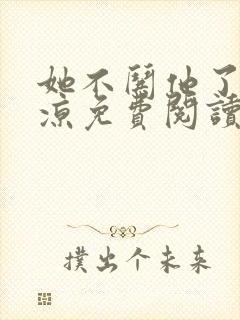 她不闹他了
凉免費閱讀
撲出个未来